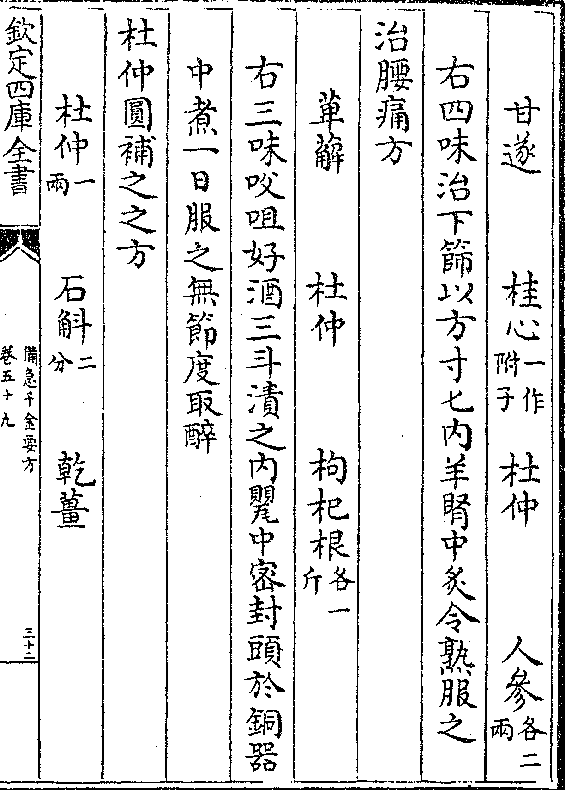 甘遂　桂心一作附子　杜仲　人參各二兩
右四味治下篩以方寸匕内羊腎中炙令熟服之
治腰痛方
萆薢　杜仲　枸杞根各一斤
右三味㕮咀好酒三斗漬之内甖中密封頭於銅器
中煮一日服之無節度取醉
杜仲圓補之之方
杜仲一兩　石斛二分　乾薑
欽定四庫全書
備急千金要方
卷五十九
三十二